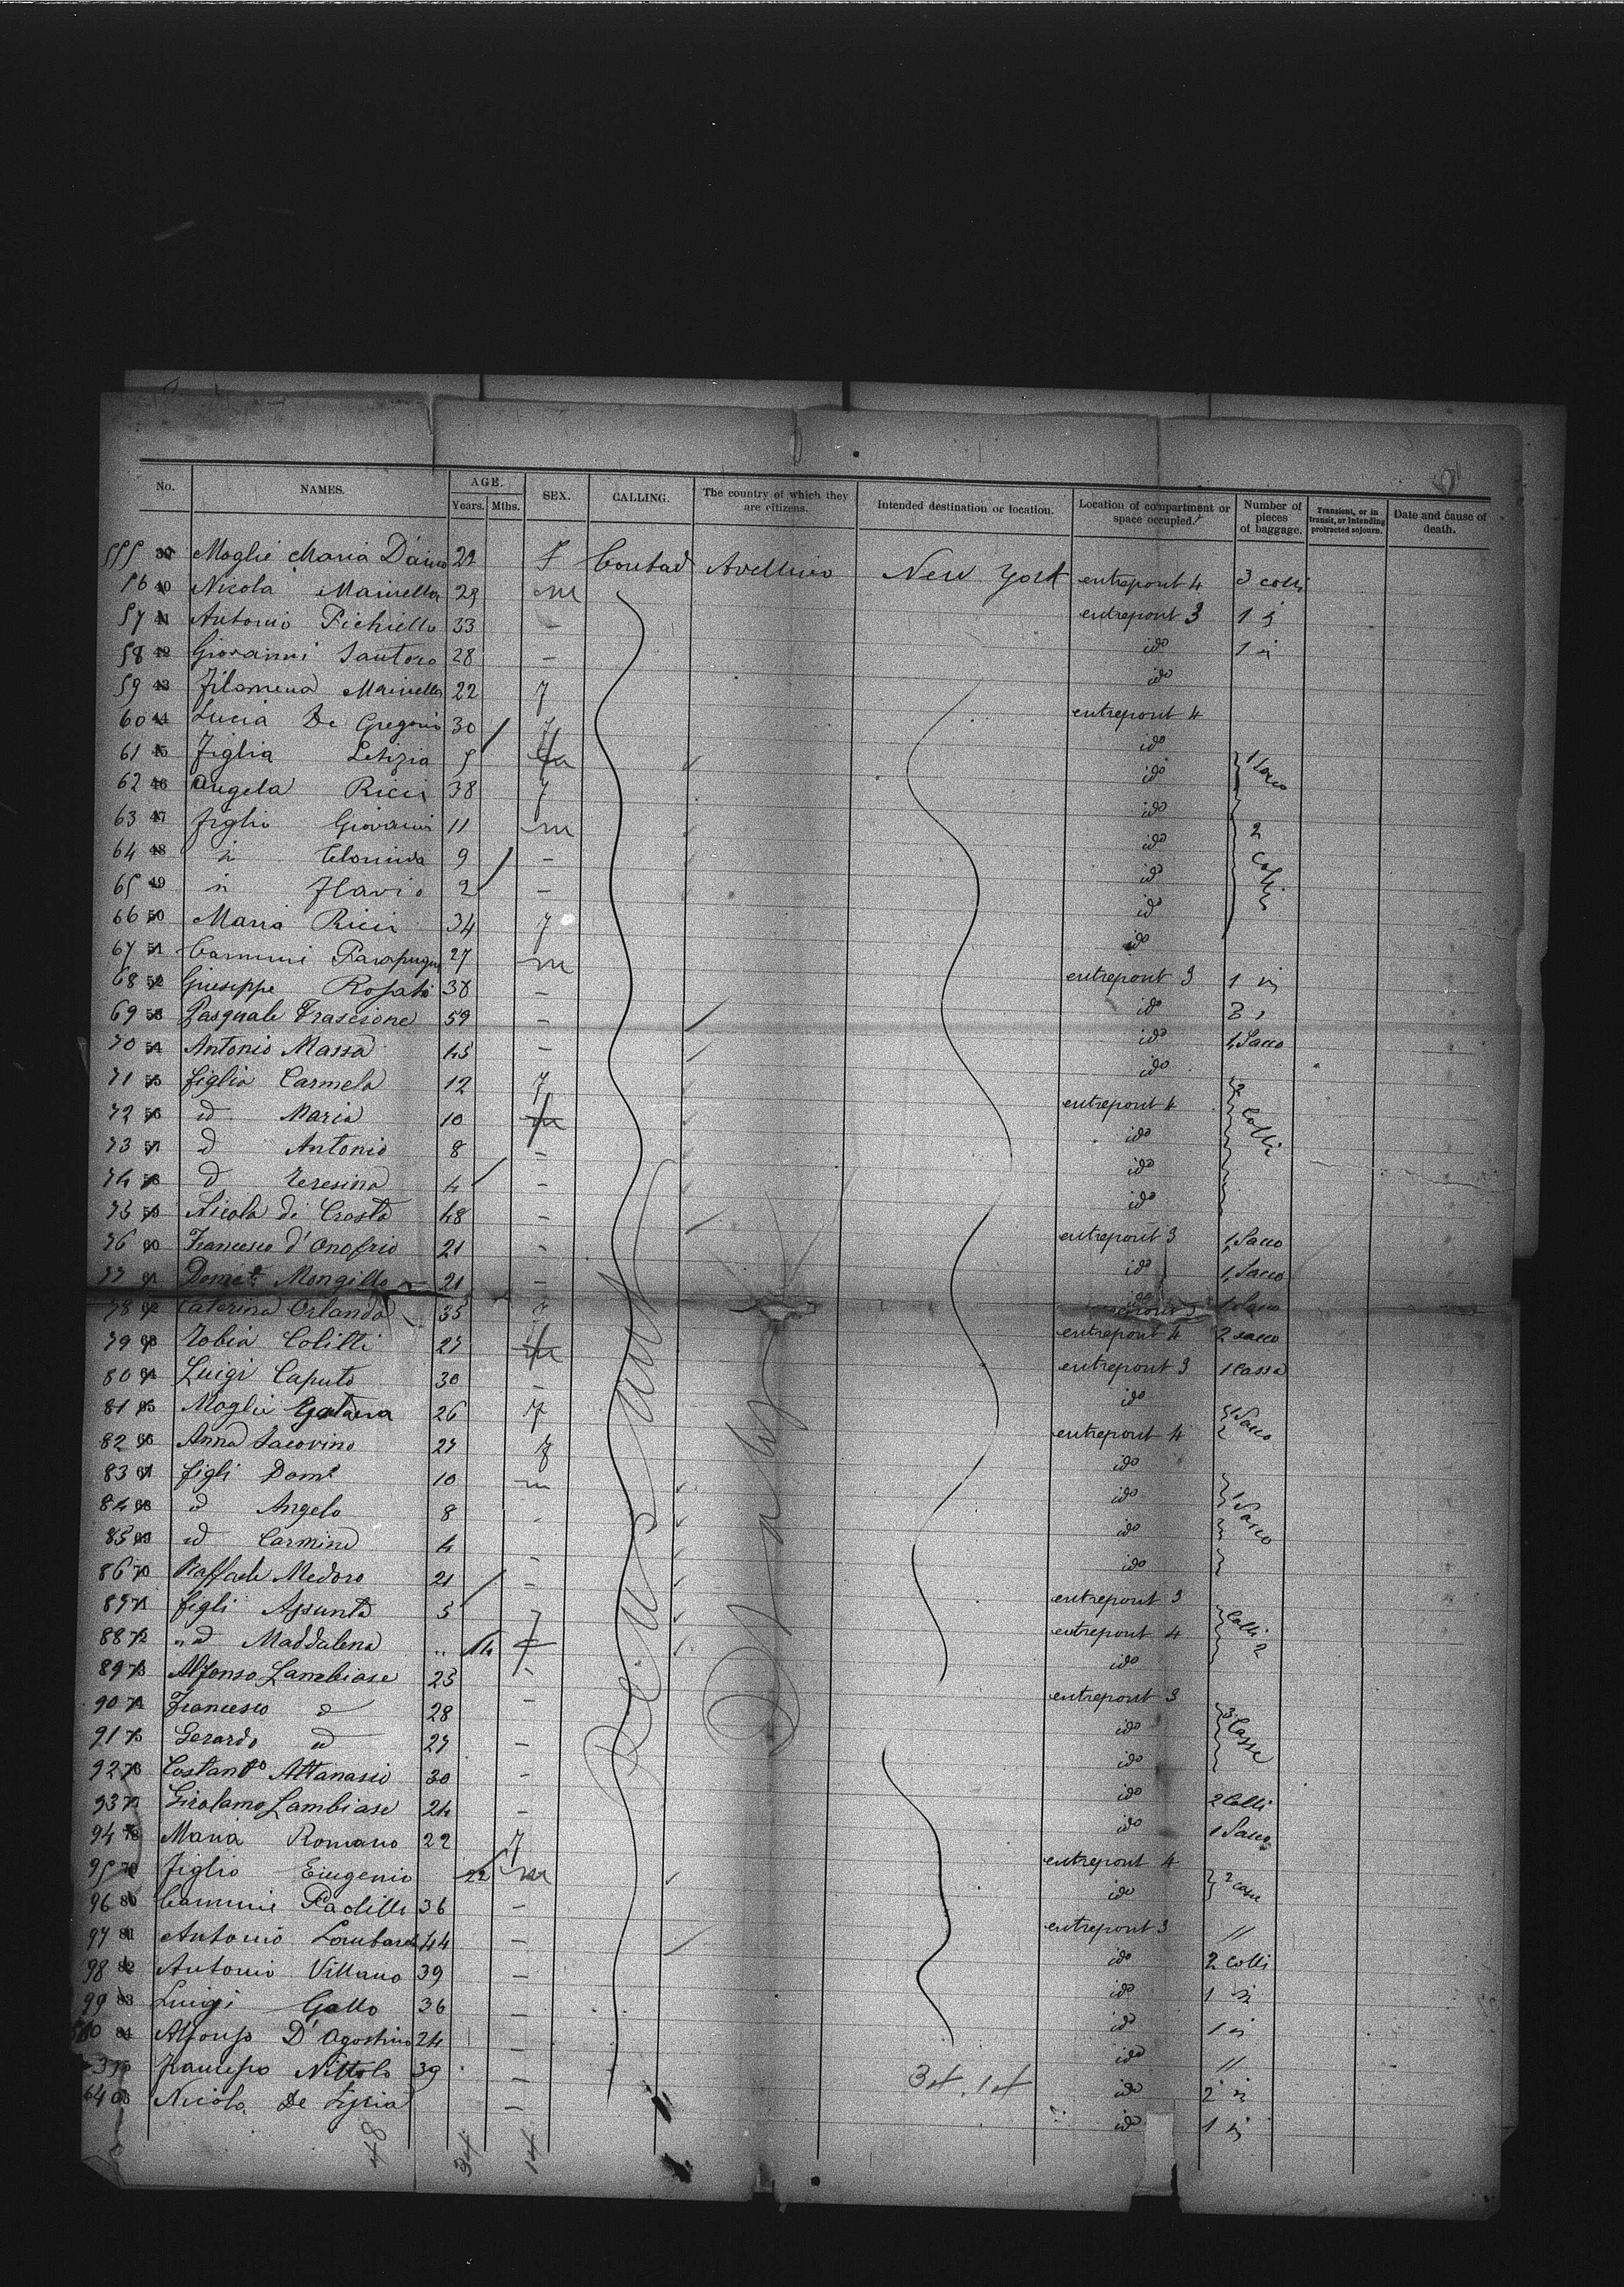 No. NAMES. AGE. Years. Mths. SEX. CALLING. The country of which they are citizens. Intended destination or location. Location of compartment or space occupied. Number of pieces of baggage. Transient, or in transit, or intending protracted sejourn. Date and cause of death.
555 39 Moglie Maria D'amo 22 F Contad Avellino New York entrepont 4 3 colli
56 40 Nicola Mainella 29 m entrepont 3 1 i
57 41 Antonio Pichiello 33 - ido 1 i
58 42 Giovanni Santoro 28 - ido
59 43 Filomena Mainella 22 f entrepont 4
60 44 Lucia De Gregorio 30 f ido
61 45 Figlia Letizia 5 ido 1 Sacco
62 46 Angela Ricci 38 f ido
63 47 figlio Giovanni 11 m ido 2 Colli
64 48 " 9 - ido
65 49 " Flavio 2 - ido
66 50 Maria Ricci 34 f ido
67 51 Carmine 27 m entrepont 3 1 i
68 52 Giuseppe Rosato 38 - ido
69 53 Pasquale Frascione 59 - ido 1 Sacco
70 54 Antonio Massa 45 - ido
71 55 figlia Carmela 12 f entrepont 4 2 Colli
72 56 id Maria 10 ido
73 57 d Antonio 8 - ido
74 58 d Teresina 4 - ido
75 59 Nicola di Crosta 48 - entrepont 3 1 Sacco
76 60 Francesco d'Onofrio 21 - ido 1 Sacco
77 61 Domco Mongillo 21 - ido 1 Sacco
78 62 Caterina Orlando 35 f entrepont 4 2 sacco
79 63 Tobia Colitti 27 m entrepont 3 1 Cassa
80 64 Luigi Caputo 30 - ido
81 65 Moglie Gaetana 26 f entrepont 4 1 Sacco
82 66 Anna Iacovino 27 f ido
83 67 figli Domo 10 m ido 1 Sacco
84 68 d Angelo 8 - ido
85 69 id Carmine 4 - ido
86 70 Raffaele Medoro 21 - entrepont 3
87 71 figli Assunta 5 f entrepont 4 Colli 2
88 72 " id Maddalena " 14 f ido
89 73 Alfonso Lambiase 25 - entrepont 3
90 74 Francesco d 28 - ido 3 Casse
91 75 Gerardo id 27 - ido
92 76 Costanto Attanasio 30 - ido 2 Colli
93 77 Girolamo Lambiase 24 - ido 1 Sacco
94 78 Maria Romano 22 f entrepont 4
95 79 figlio Eugenio 22 m ido 2 casse
96 80 Carmine Paolillo 36 - entrepont 3 "
97 81 Antonio Lombardi 44 - ido 2 colli
98 82 Antonio Villano 39 - ido 1 i
99 83 Luigi Gallo 36 - ido 1 i
84 Alfonso D'Agostino 24 - ido "
85 Francesco Nittolo 39 - ido 2 i
Nicola De - ido 1 i
34. 14
48 34 14